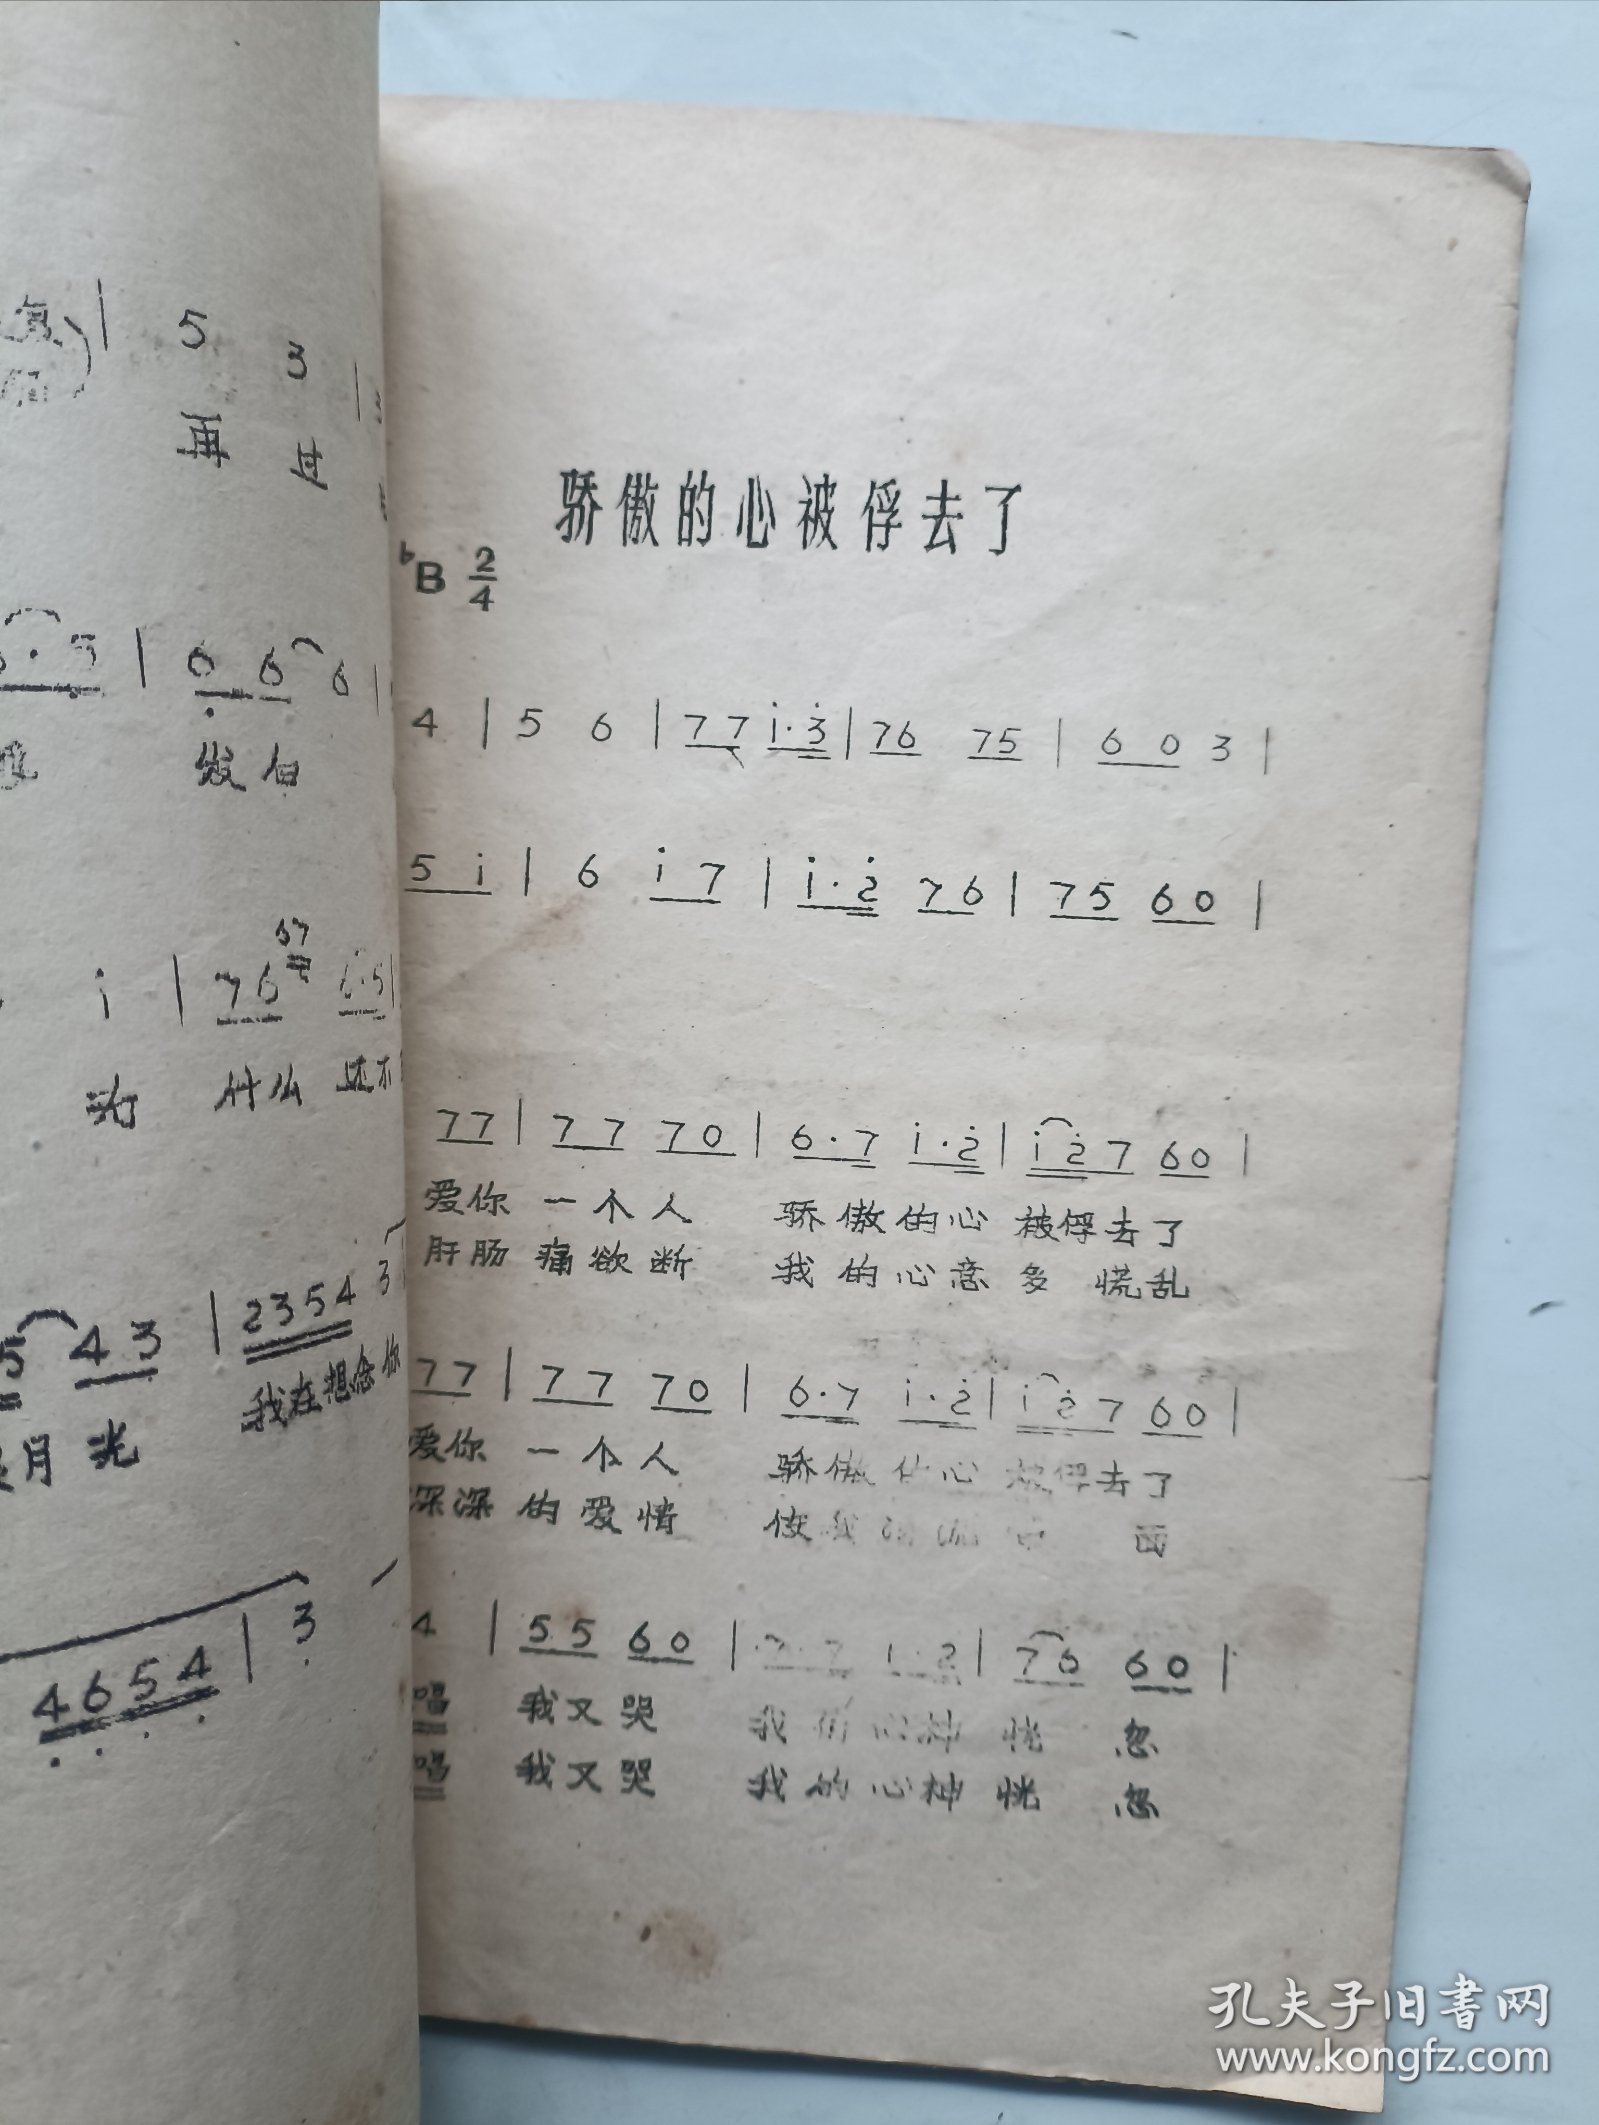 5 3
再 过
6 6 6
发 白
i | 76
什么 还不
43 | 2354 3
月光 我在想念你
4654 | 3
骄傲的心被俘去了
♭B 2/4
4 | 5 6 | 77 i·3 | 76 75 | 60 3 |
5 i | 6 i7 | i·2 76 | 75 60 |
77 | 77 70 | 6·7 i·2 | i27 60 |
爱你 一个人 骄傲的心 被俘去了
肝肠 痛欲断 我的心意多慌乱
77 | 77 70 | 6·7 i·2 | i27 60 |
爱你 一个人 骄傲的心 被俘去了
深深 的爱情 使我
4 | 55 60 | 76 60 |
唱 我又哭 我 神恍 忽
唱 我又哭 我的心神恍 忽
孔夫子旧书网
www.kongfz.com